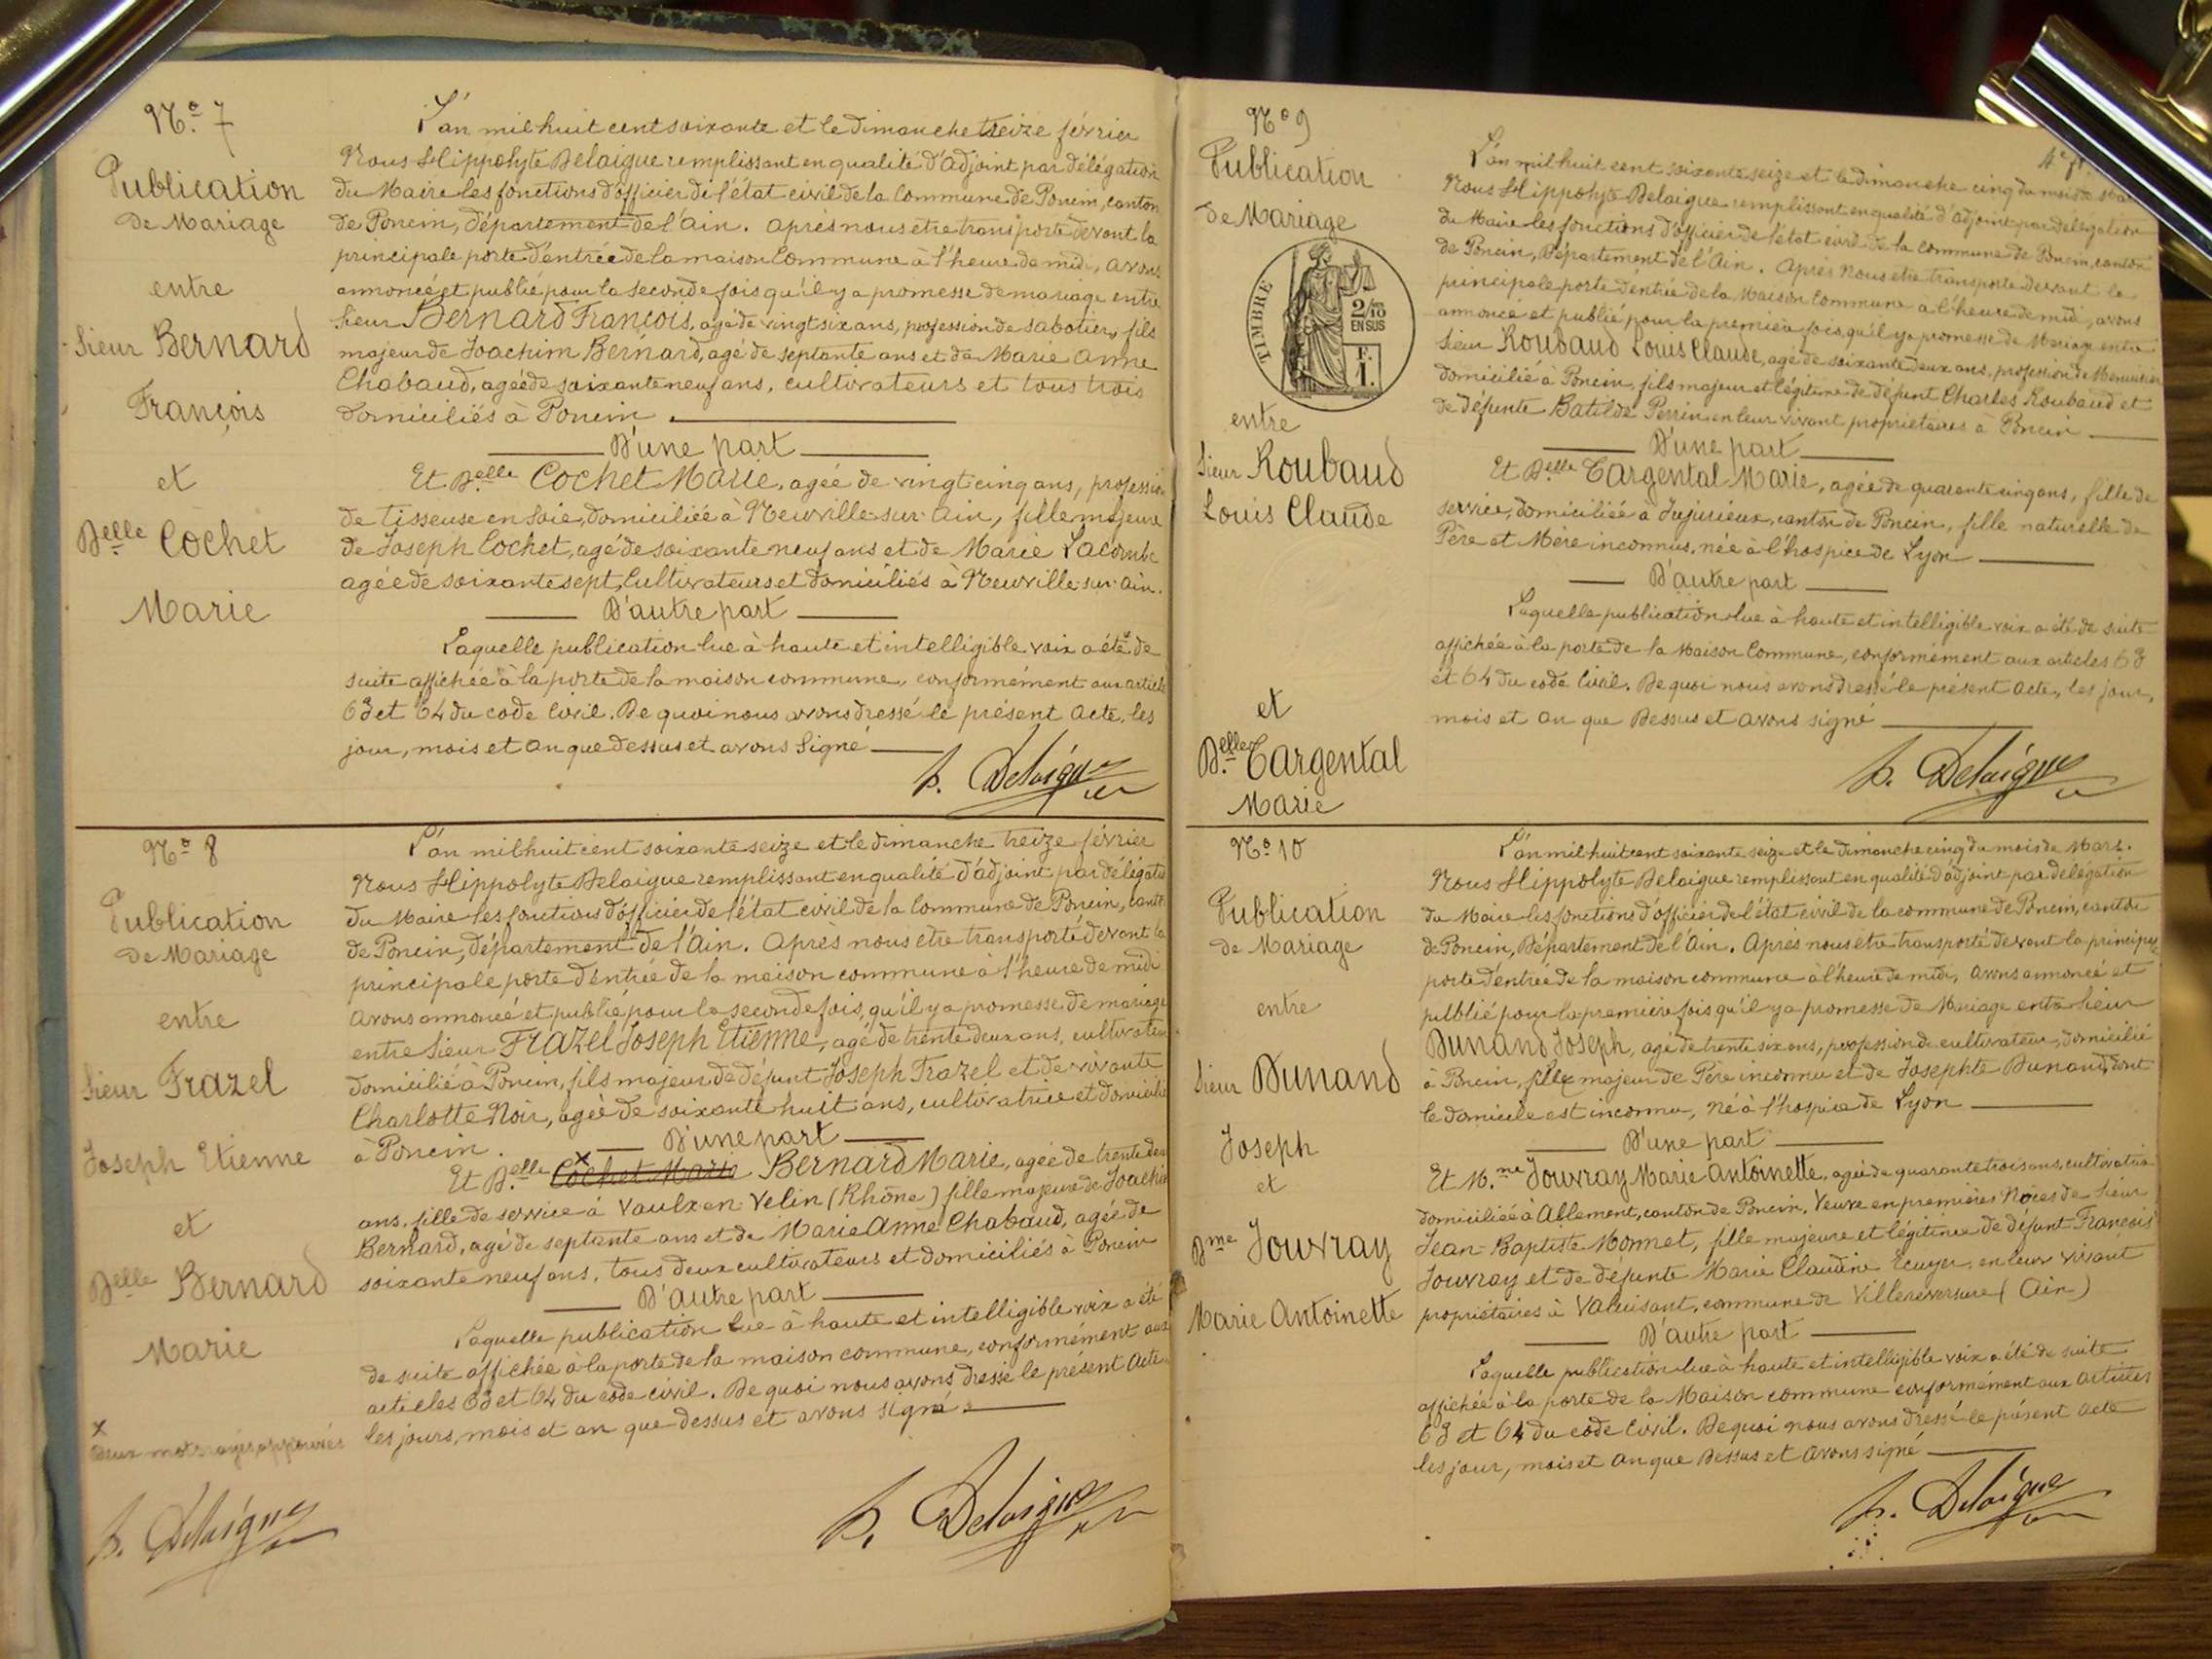 No. 7
Publication
de Mariage
entre
Sieur Bernard
François
et
Delle Cochet
Marie
L'an mil huit cent soixante et le dimanche treize février
Nous Hippolyte Delaigue remplissant en qualité d'adjoint par délégation
du Maire les fonctions d'officier de l'état civil de la Commune de Poncin, canton
de Poncin, département de l'Ain. Après nous etre transporté devant la
principale porte d'entrée de la maison Commune à l'heure de midi, avons
annoncé et publié pour la seconde fois qu'il y a promesse de mariage entre
Sieur Bernard François, agé de vingt six ans, profession de sabotier, fils
majeur de Joachim Bernard, agé de septante ans et de Marie Anne
Chabaud, agée de soixante neuf ans, cultivateurs et tous trois
domiciliés à Poncin.
D'une part
Et Delle Cochet Marie, agée de vingt cinq ans, profession
de tisseuse en soie, domiciliée à Neuville-sur-Ain, fille majeure
de Joseph Cochet, agé de soixante neuf ans et de Marie Lacombe
agée de soixante sept, Cultivateurs et domiciliés à Neuville-sur-Ain.
D'autre part
Laquelle publication lue à haute et intelligible voix a été de
suite affichée à la porte de la maison commune, conformément aux article
63 et 64 du code Civil. De quoi nous avons dressé le présent acte, les
jour, mois et an que dessus et avons Signé
h. Delaigue
No. 8
Publication
de Mariage
entre
Sieur Frazel
Joseph Etienne
et
Delle Bernard
Marie
x
deux mots rayés approuvés
h. Delaigue
L'an mil huit cent soixante seize et le dimanche treize février
Nous Hippolyte Delaigue remplissant en qualité d'adjoint par délégatio
du Maire les fonctions d'officier de l'état civil de la Commune de Poncin, cant
de Poncin, département de l'Ain. Après nous etre transporté devant la
principale porte d'entrée de la maison commune à l'heure de midi
avons annoncé et publié pour la seconde fois, qu'il y a promesse de mariage
entre Sieur Frazel Joseph Etienne, agé de trente deux ans, cultivateu
domicilié à Poncin, fils majeur de défunt Joseph Frazel et de vivante
Charlotte Noir, agée de soixante huit ans, cultivatrice et domicilié
à Poncin. D'une part
Et Delle x Cochet Marie Bernard Marie, agée de trente deu
ans, fille de service à Vaulx en Velin (Rhône) fille majeure de Joachi
Bernard, agé de septante ans et de Marie Anne Chabaud, agée de
soixante neuf ans, tous deux cultivateurs et domiciliés à Poncin
D'autre part
Laquelle publication lue à haute et intelligible voix a été
de suite affichée à la porte de la maison commune, conformément aux
articles 63 et 64 du code civil. De quoi nous avons dressé le présent acte
les jours, mois et an que dessus et avons signé.
h. Delaigue
No 9
Publication
de Mariage
TIMBRE
2/10
EN SUS
F.
1.
entre
Sieur Roubaud
Louis Claude
et
Delle Cargental
Marie
4e
L'an mil huit cent soixante seize et le dimanche cinq du mois de Mar
Nous Hippolyte Delaigue remplissant en qualité d'adjoint par délégation
du Maire les fonctions d'officier de l'état civil de la Commune de Poncin, canton
de Poncin, Département de l'Ain. Après Nous etre transporté devant la
principale porte d'entrée de la Maison Commune à l'heure de midi, avons
annoncé et publié pour la première fois qu'il y a promesse de Mariage entre
Sieur Roubaud Louis Claude, agé de soixante deux ans, profession de Menuisier
domicilié à Poncin, fils majeur et légitime de défunt Charles Roubaud et
de défunte Batilde Perrin en leur vivant propriétaires à Poncin
D'une part
Et Delle Cargental Marie, agée de quarante cinq ans, fille de
service, domiciliée à Jujurieux, canton de Poncin, fille naturelle de
Père et Mère inconnus, née à l'hospice de Lyon
D'autre part
Laquelle publication lue à haute et intelligible voix a été de suite
affichée à la porte de la Maison Commune, conformément aux articles 63
et 64 du code Civil. De quoi nous avons dressé le présent acte, les jour,
mois et an que Dessus et avons signé
h. Delaigue
No. 10
Publication
de Mariage
entre
Sieur Dunand
Joseph
et
Dme Jouvray
Marie Antoinette
L'an mil huit cent soixante seize et le dimanche cinq du mois de Mars.
Nous Hippolyte Delaigue remplissant en qualité d'adjoint par délégation
du Maire les fonctions d'officier de l'état civil de la commune de Poncin, canton
de Poncin, Département de l'Ain. Après nous être transporté devant la principa
porte d'entrée de la maison commune à l'heure de midi, avons annoncé et
publié pour la première fois qu'il y a promesse de Mariage entre Sieur
Dunand Joseph, agé de trente six ans, profession de cultivateur, domicilié
à Poncin, fils majeur de Père inconnu et de Josephte Dunand, dont
le domicile est inconnu, Né à l'hospice de Lyon
D'une part
Et Mme Jouvray Marie Antoinette, agée de quarante trois ans, cultivatrice
domiciliée à Allement, canton de Poncin, Veuve en premières Noces de Sieur
Jean-Baptiste Monnet, fille majeure et légitime de défunt François
Jouvray et de défunte Marie Claudine Ecuyer, en leur vivant
propriétaires à Valuisant, commune de Villereversure (Ain)
D'autre part
Laquelle publication lue à haute et intelligible voix a été de suite
affichée à la porte de la Maison commune conformément aux articles
63 et 64 du code Civil. De quoi nous avons dressé le présent acte
les jour, mois et an que Dessus et avons signé
h. Delaigue